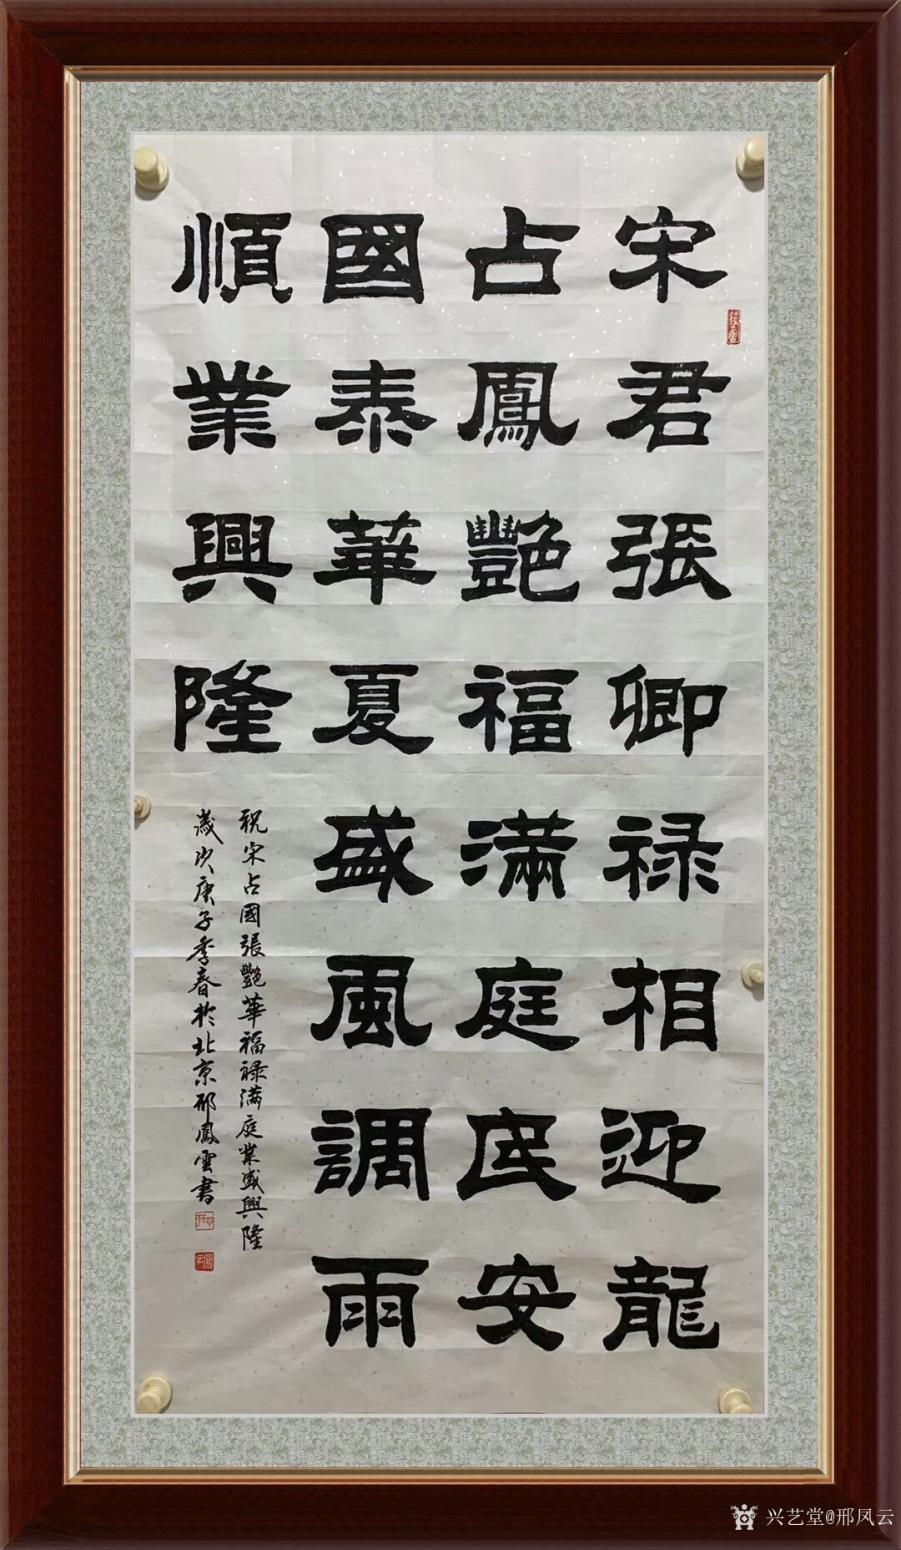 宋君張卿禄相迎龍
占鳳艷福滿庭民安
國泰華夏盛風調雨
順業興隆
祝宋占國張艷華福禄滿庭業盛興隆
歲次庚子季春於北京邢鳳雲書
兴艺堂@邢凤云